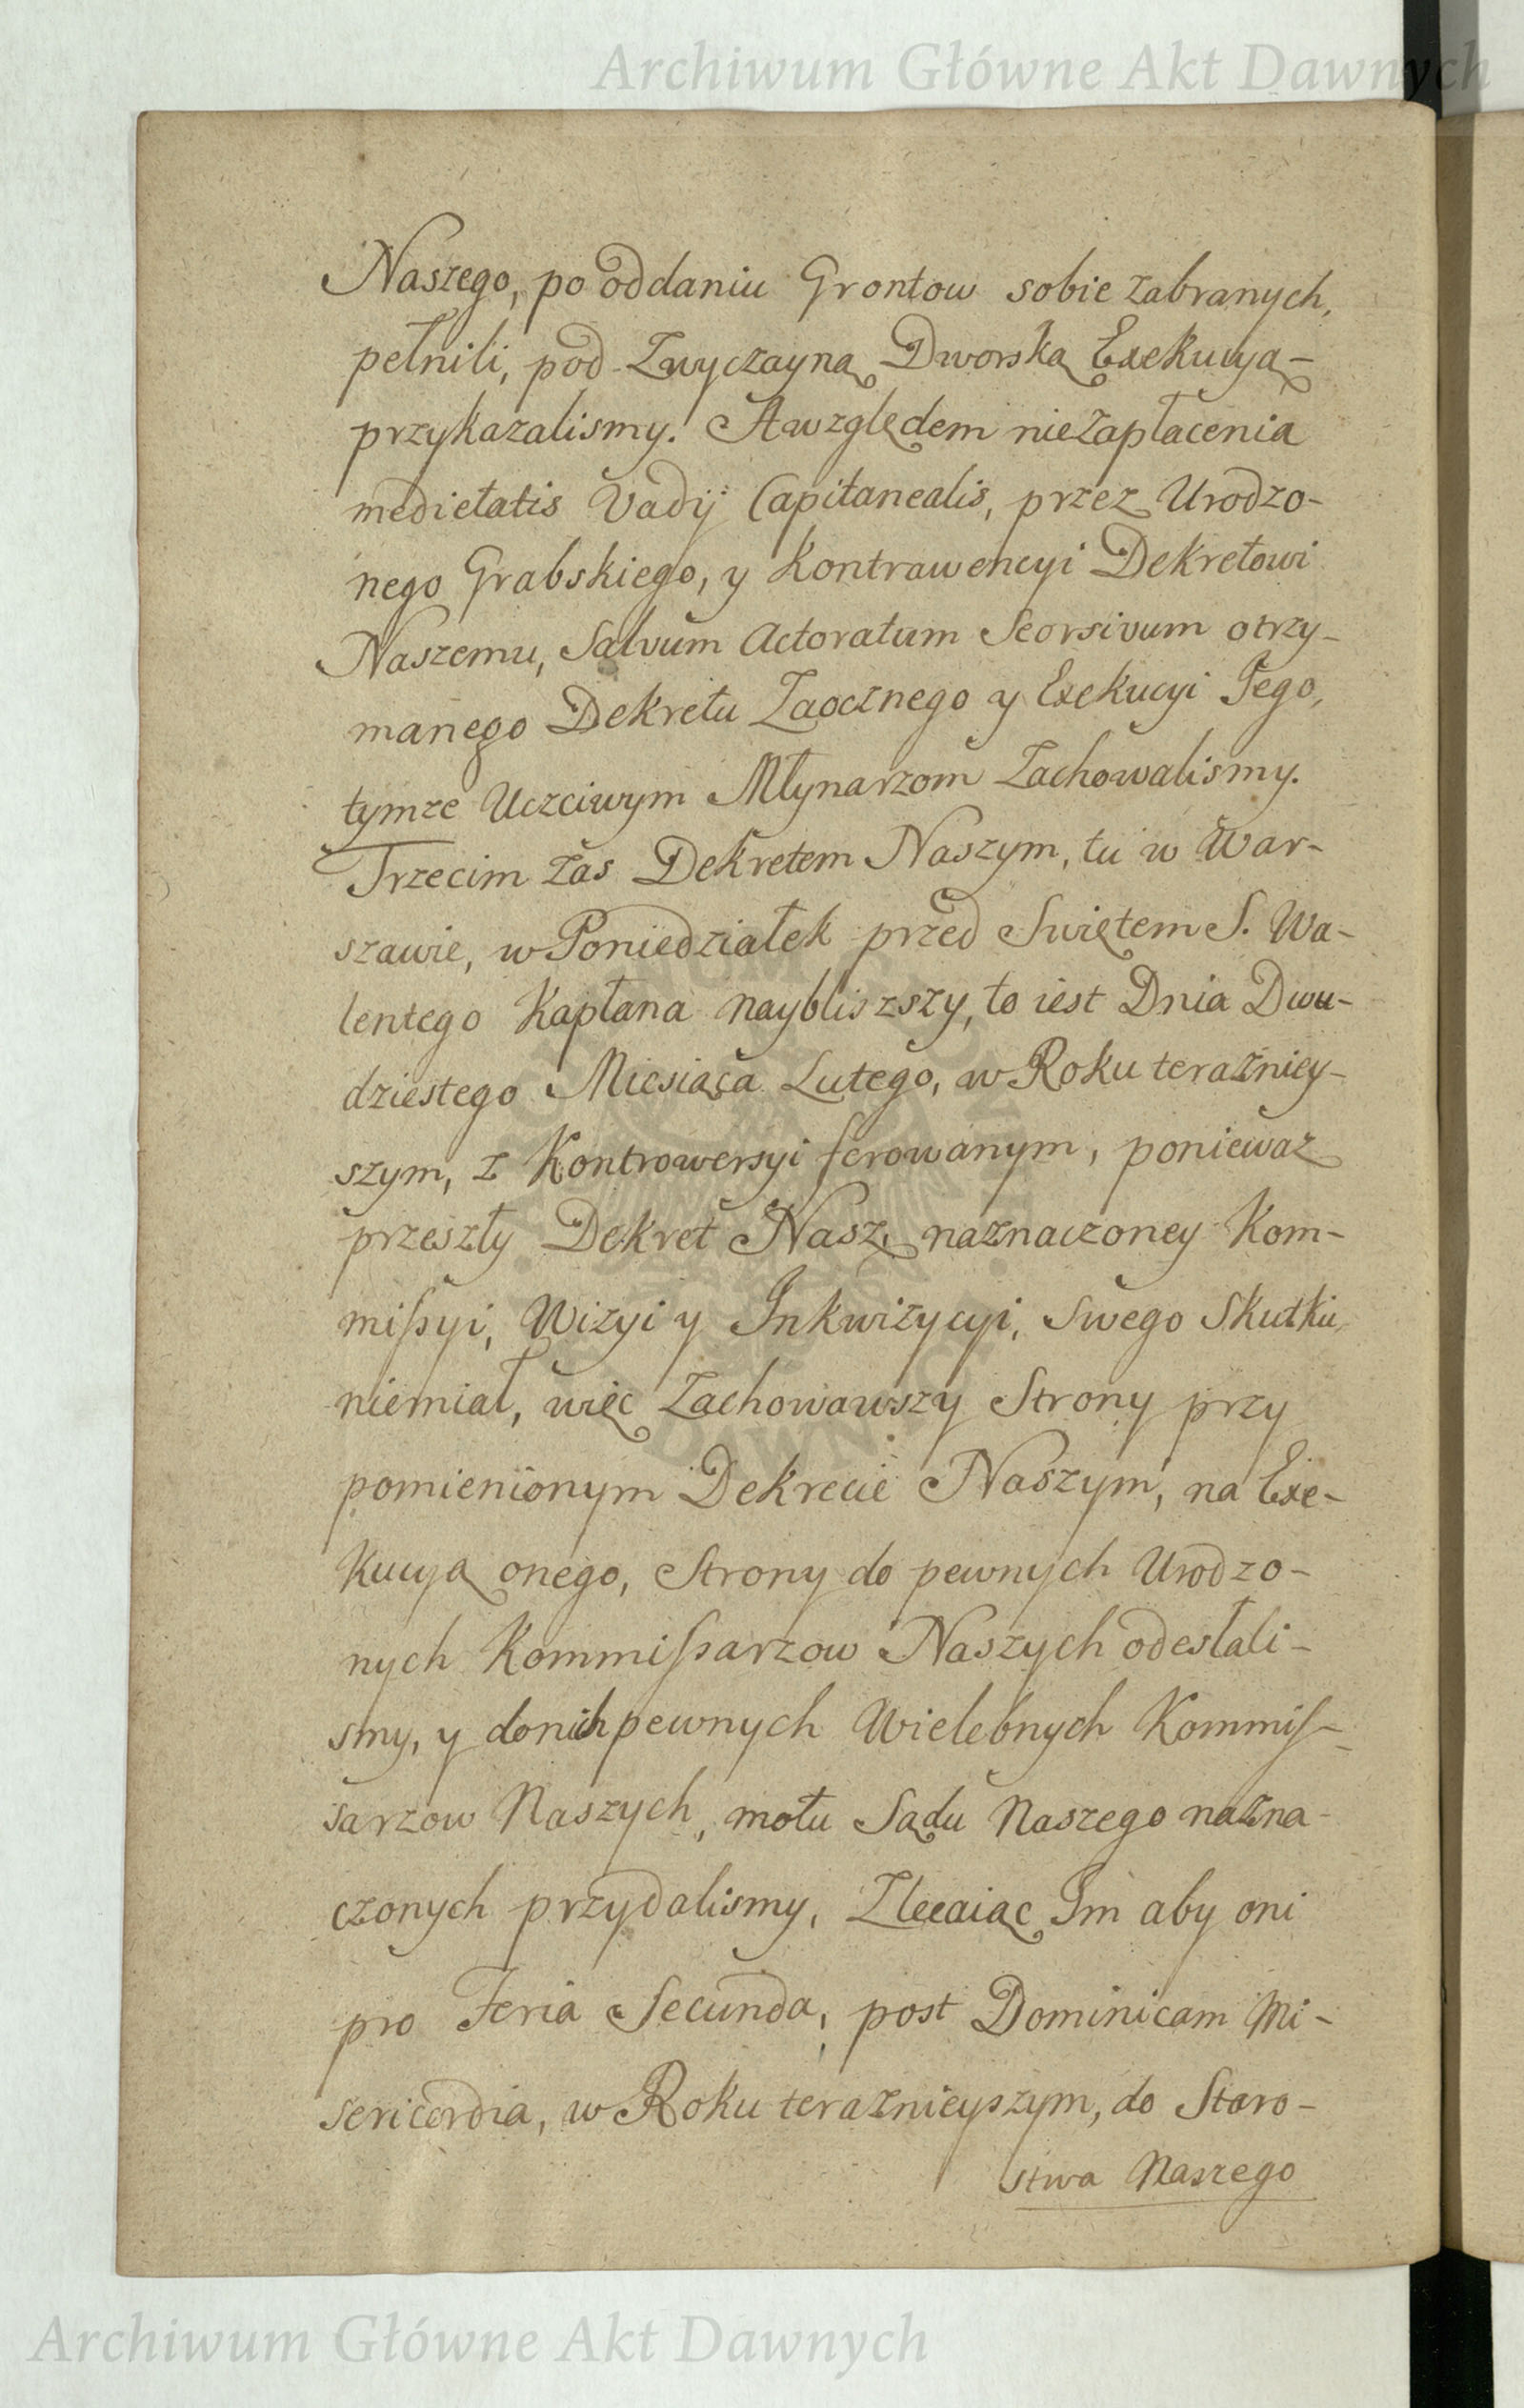 Archiwum Główne Akt Dawnych
Naszego, po oddaniu Grontow sobie zabranych,
pełnili, pod Zwyczayną Dworską Exekucyą
przykazalismy. A względem niezapłacenia
medietatis Vadij Capitanealis, przez Urodzo-
nego Grabskiego, y Kontrawencyi Dekretowi
Naszemu, Salvum Actoratum Seorsivum otrzy-
manego Dekretu Zaocznego y Exekucyi Jego,
tymze Uczciwym Młynarzom Zachowalismy.
Trzecim zas Dekretem Naszym, tu w War-
szawie, w Poniedziałek przed Swiętem S. Wa-
lentego Kapłana naybliszszy, to iest Dnia Dwu-
dziestego Miesiąca Lutego, w Roku teraźniey-
szym, z Kontrowersyi ferowanym, poniewaz
przeszły Dekret Nasz, naznaczoney Kom-
missyi, Wizyi y Inkwizycyi, Swego Skutku
niemiał, więc Zachowawszy Strony przy
pomienionym Dekrecie Naszym, na Exe-
kucyą onego, Strony do pewnych Urodzo-
nych Kommissarzow Naszych odesłali-
smy, y donich pewnych Wielebnych Kommis-
sarzow Naszych, motu Sądu Naszego nazna-
czonych przydalismy, Zlecaiąc Im aby oni
pro Feria Secunda, post Dominicam Mi-
sericordia, w Roku teraznieyszym, do Staro-
stwa Naszego
Archiwum Główne Akt Dawnych